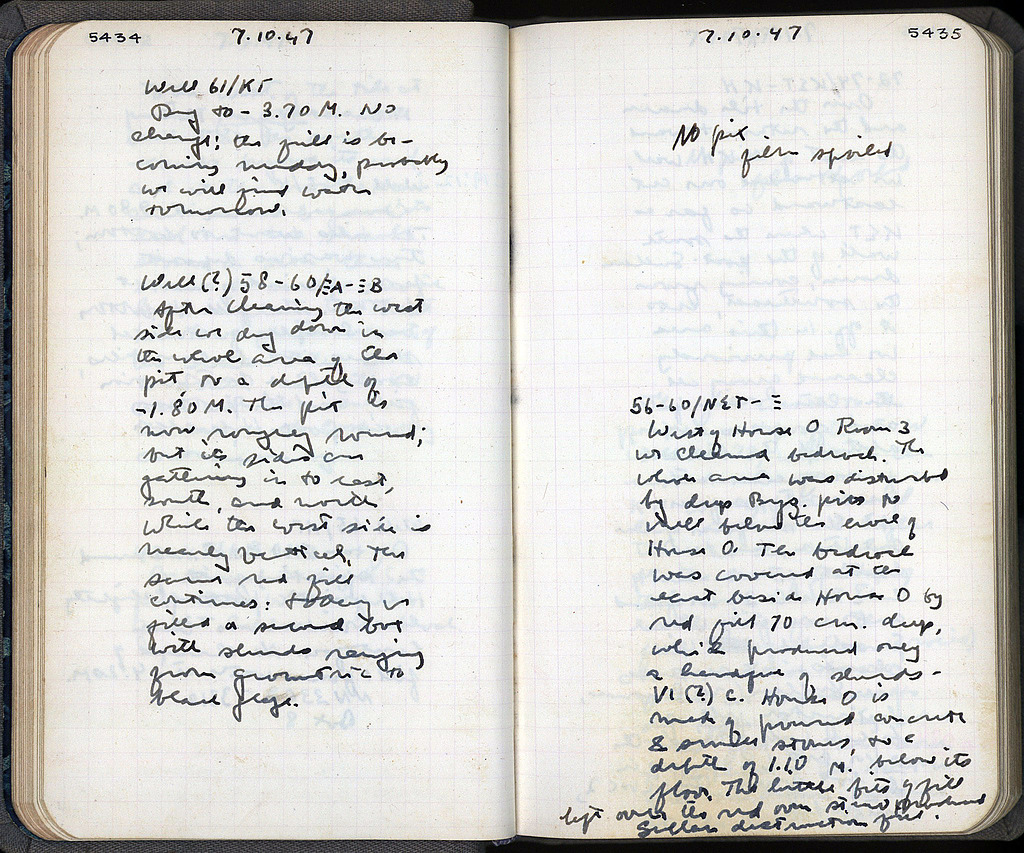 5434
7.10.47
Well 61/ΚΓ
Dug to - 3.70 M. No
change; the fill is be-
coming muddy, probably
we will find water
tomorrow.
Well (?) 58-60/ΞΑ-ΞΒ
After cleaning the west
side we dug down in
the whole area of the
pit, to a depth of
-1.80 M. The pit is
now roughly round;
but its sides are
gathering in to east,
south, and north
while the west side is
nearly vertical. The
same red fill
continues: today we
filled a second box
with sherds ranging
from geometric to
black glaze.
7.10.47
5435
No pix
film spoiled
56-60/ΝΣΤ-Ξ
West of House O Room 3
we cleaned bedrock. The
whole area was disturbed
by deep Byz. pits to
well below the level of
House O. The bedrock
was covered at the
east beside House O by
red fill 70 cm. deep,
which produced only
a handful of sherds -
VI (?) c. House O is
made of poured concrete
& small stones, to a
depth of 1.10 M. below its
floor. The little bits of fill
left over the red over produced
Sullan destruction fill.